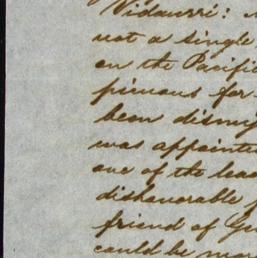 Vidaurri:
not a single
on the Pacific
pinions for
been dismis
was appointe
one of the lea
dishonorable
friend of Ge
could be mor